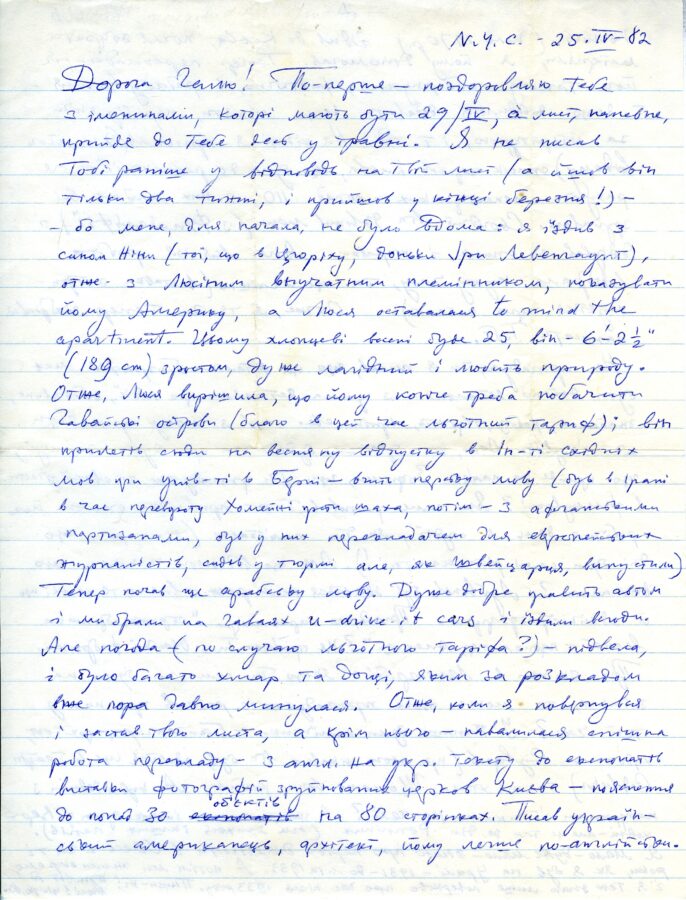 N.Y.C. - 25.IV-82
Дорога Галю! По-перше – поздоровляю Тебе
з іменинами, котрі мають бути 29/IV, а лист, напевне,
прийде до Тебе десь у травні. Я не писав
Тобі раніше у відповідь на Твій лист (а йшов він
тільки два тижні, і прийшов у кінці березня!) –
– бо мене, для начала, не було вдома: я їздив з
сином Ніни (тої, що в Цюріху, доньки Іри Левентаупт),
отже – з Люсіним внучатним племінником, показувати
йому Америку, а Люся оставалася to mind the
apartment. Цьому хлопцеві восені буде 25, він – 6'-2½"
(189 cm) зростом, дуже лагідний і любить природу.
Отже, Люся вирішила, що йому конче треба побачити
Гавайські острови (благо в цей час льготний тариф); він
прилетів сюди на весняну відпустку в Ін-ті східніх
мов при унів-ті в Берні – вчить перську мову (був в Ірані
в час перевороту Хомейні проти шаха, потім – з афганськими
партизанами, був у них перекладачем для європейських
журналістів, сидів у тюрмі але, як швейцарця, випустили)
Тепер почав ще арабську мову. Дуже добре править автом
і ми брали на Гаваях u-drive-it cars і їздили всюди.
Але погода (по случаю льготного таріфа?) – підвела,
і було багато хмар та дощі, яким за розкладом
вже пора давно минулася. Отже, коли я повернувся
і застав твого листа, а крім нього – навалилася спішна
робота перекладу – з англ. на укр. тексту до експонатів
виставки фотографій зруйнованих церков Києва – пояснення
до понад 30 об'єктів на 80 сторінках. Писав україн-
ський американець, архітект, йому легше по-англійськи.